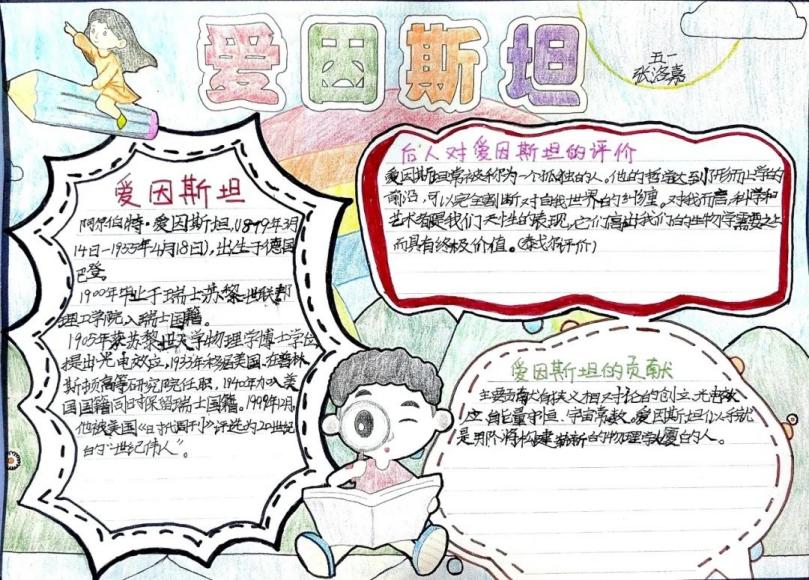 爱因斯坦
五一
张洛嘉
爱因斯坦
阿尔伯特·爱因斯坦,(1879年3月
14日-1955年4月18日),出生于德国
巴登。
1900年毕业于瑞士苏黎世联邦
理工学院入瑞士国籍。
1905年获苏黎世大学物理学博士学位
提出光电效应,1933年移居美国,在普林
斯顿高等研究院任职,1940年加入美
国国籍同时保留瑞士国籍。1999年12月,
他被美国《时代周刊》评选为20世纪
的“世纪伟人”。
后人对爱因斯坦的评价
爱因斯坦常被称为一个孤独的人。他的哲学达到了形而上学的
前沿,可以完全割断对自我世界的纠缠。对我而言,科学和
艺术都是我们天性的表现,它们高出我们的生物学需要之上
而具有终极价值。(泰戈尔评价)
爱因斯坦的贡献
主要贡献有狭义相对论的创立,光电效
应,能量守恒、宇宙常数。爱因斯坦似乎就
是那个将构建新的物理学大厦的人。